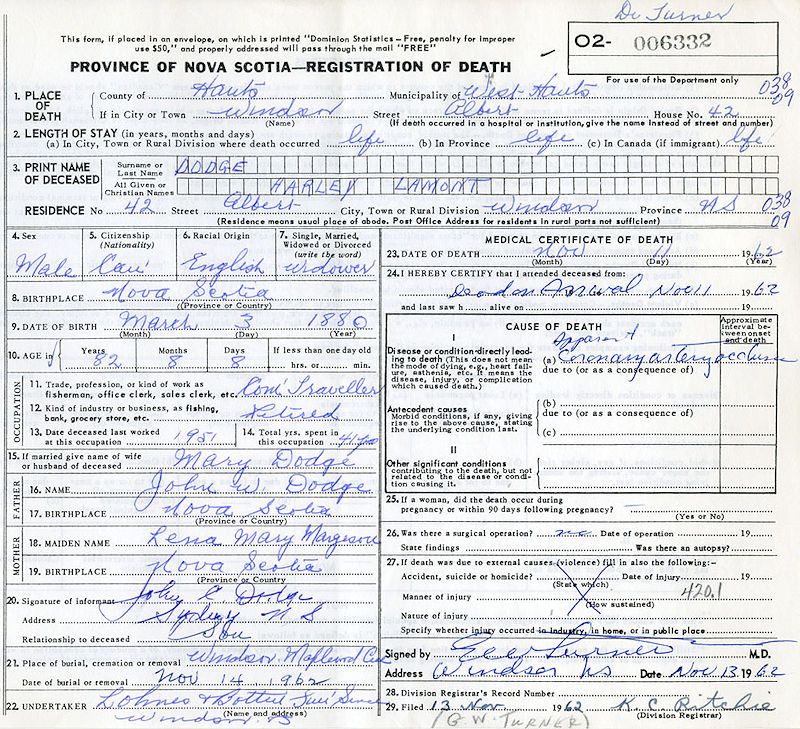 Dr Turner
This form, if placed in an envelope, on which is printed "Dominion Statistics—Free, penalty for improper
use $50," and properly addressed will pass through the mail "FREE"
O2- 006332
PROVINCE OF NOVA SCOTIA—REGISTRATION OF DEATH
For use of the Department only
1. PLACE OF DEATH County of Hants Municipality of West Hants 038
If in City or Town Windsor Street Albert House No. 42 09
(Name) (If death occurred in a hospital or institution, give the name instead of street and number)
2. LENGTH OF STAY (in years, months and days)
(a) In City, Town or Rural Division where death occurred life (b) In Province life (c) In Canada (if immigrant) life
3. PRINT NAME OF DECEASED Surname or Last Name DODGE
All Given or Christian Names HARLEY LAMONT
RESIDENCE No 42 Street Albert City, Town or Rural Division Windsor Province NS 038
(Residence means usual place of abode. Post Office Address for residents in rural parts not sufficient) 09
4. Sex 5. Citizenship (Nationality) 6. Racial Origin 7. Single, Married, Widowed or Divorced (write the word)
Male Can English widower
8. BIRTHPLACE Nova Scotia
(Province or Country)
9. DATE OF BIRTH March 3 1880
(Month) (Day) (Year)
10. AGE in Years Months Days If less than one day old
82 8 8 hrs. or min.
OCCUPATION
11. Trade, profession, or kind of work as
fisherman, office clerk, sales clerk, etc. Com' Traveller
12. Kind of industry or business, as fishing,
bank, grocery store, etc. Retired
13. Date deceased last worked at this occupation 1951 14. Total yrs. spent in this occupation 41
15. If married give name of wife
or husband of deceased Mary Dodge
FATHER
16. NAME John W. Dodge
17. BIRTHPLACE Nova Scotia
(Province or Country)
MOTHER
18. MAIDEN NAME Lena Mary Margeson
19. BIRTHPLACE Nova Scotia
(Province or Country)
20. Signature of informant John C Dodge
Address Sydney N S
Relationship to deceased Son
21. Place of burial, cremation or removal Windsor Maplewood Cem
Date of burial or removal Nov 14 1962
22. UNDERTAKER Lohnes &
(Name and address)
Windsor NS
MEDICAL CERTIFICATE OF DEATH
23. DATE OF DEATH Nov 11 1962
(Month) (Day) (Year)
24. I HEREBY CERTIFY that I attended deceased from:
Dead on Arrival Nov 11 1962
and last saw h alive on 19
CAUSE OF DEATH
Approximate interval between onset and death
I
Apparent
Disease or condition directly leading to death (This does not mean the mode of dying, e.g., heart failure, asthenia, etc. It means the disease, injury, or complication which caused death.)
(a) Coronary artery occlusion
due to (or as a consequence of)
Antecedent causes
Morbid conditions, if any, giving rise to the above cause, stating the underlying condition last.
(b)
due to (or as a consequence of)
(c)
II
Other significant conditions
contributing to the death, but not related to the disease or condition causing it.
25. If a woman, did the death occur during
pregnancy or within 90 days following pregnancy?
(Yes or No)
26. Was there a surgical operation? no Date of operation 19
State findings Was there an autopsy?
27. If death was due to external causes (violence) fill in also the following:-
Accident, suicide or homicide? Date of injury 19
(State which)
Manner of injury 420.1
(How sustained)
Nature of injury
Specify whether injury occurred in industry, in home, or in public place
Signed by Turner M.D.
Address Windsor NS Date Nov 13 1962
28. Division Registrar's Record Number
29. Filed 13 Nov. 1962 K. C. Ritchie
(Division Registrar)
(G. W. TURNER)